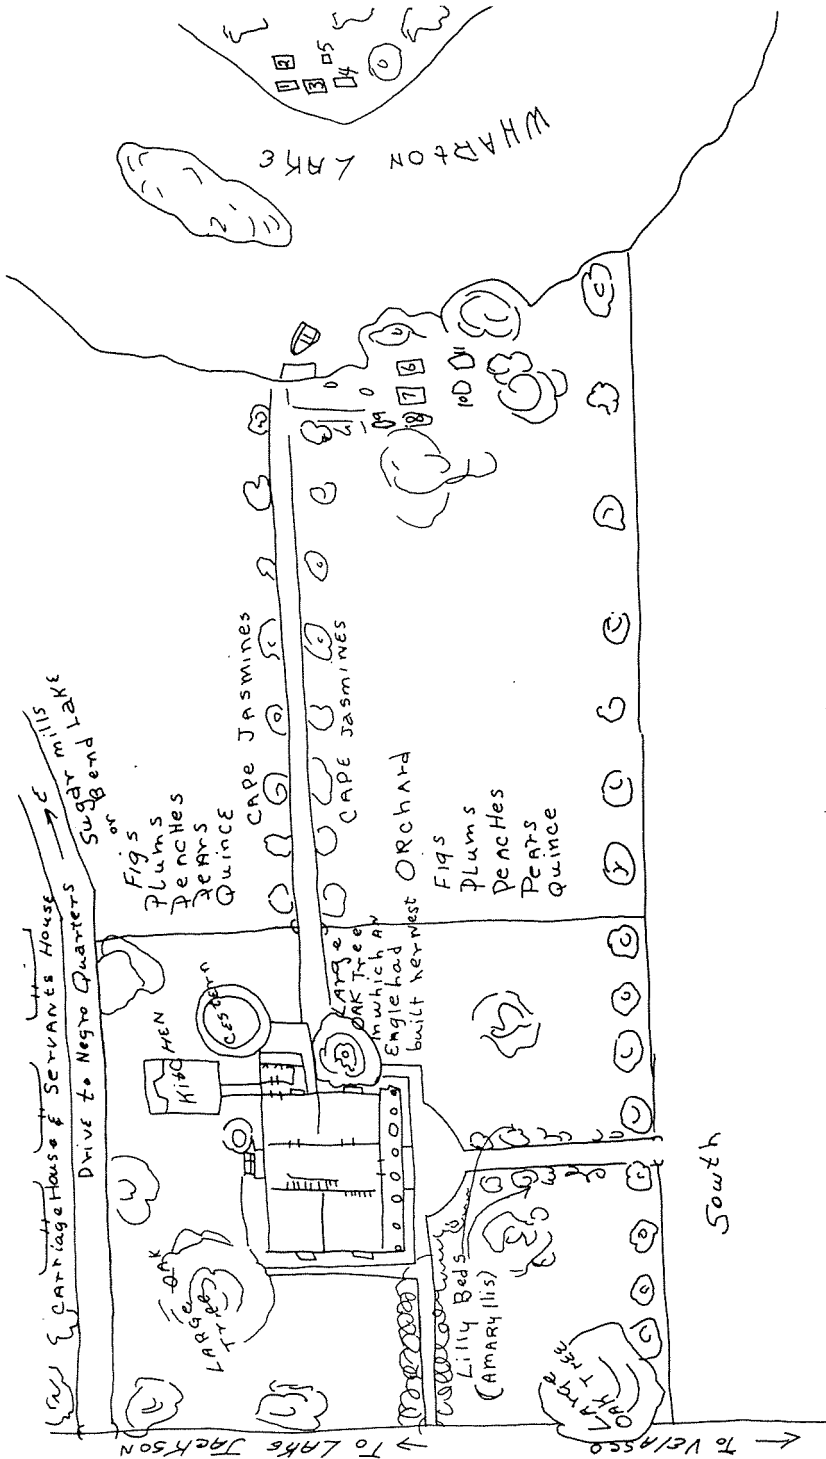 CARRIAGE House & Servants House
Drive to Negro Quarters → &
Sugar mills
or Bend LAKE
Figs
Plums
Peaches
Pears
Quince
CAPE JASMINES
CAPE JASMINES
ORCHArd
Figs
Plums
Peaches
Pears
Quince
KitcHEN
CESTERN
LArge
OAK Tree
in which AN
Eaglehad
built her nest
LARGE OAK
TREE
Lilly Beds
(AMARYllis)
LArge
OAK TREE
South
→ To LAKE JACKSON
← To VElASSO
WHARtON LAKE
1
2
3
4
5
6
7
8
9
10
11